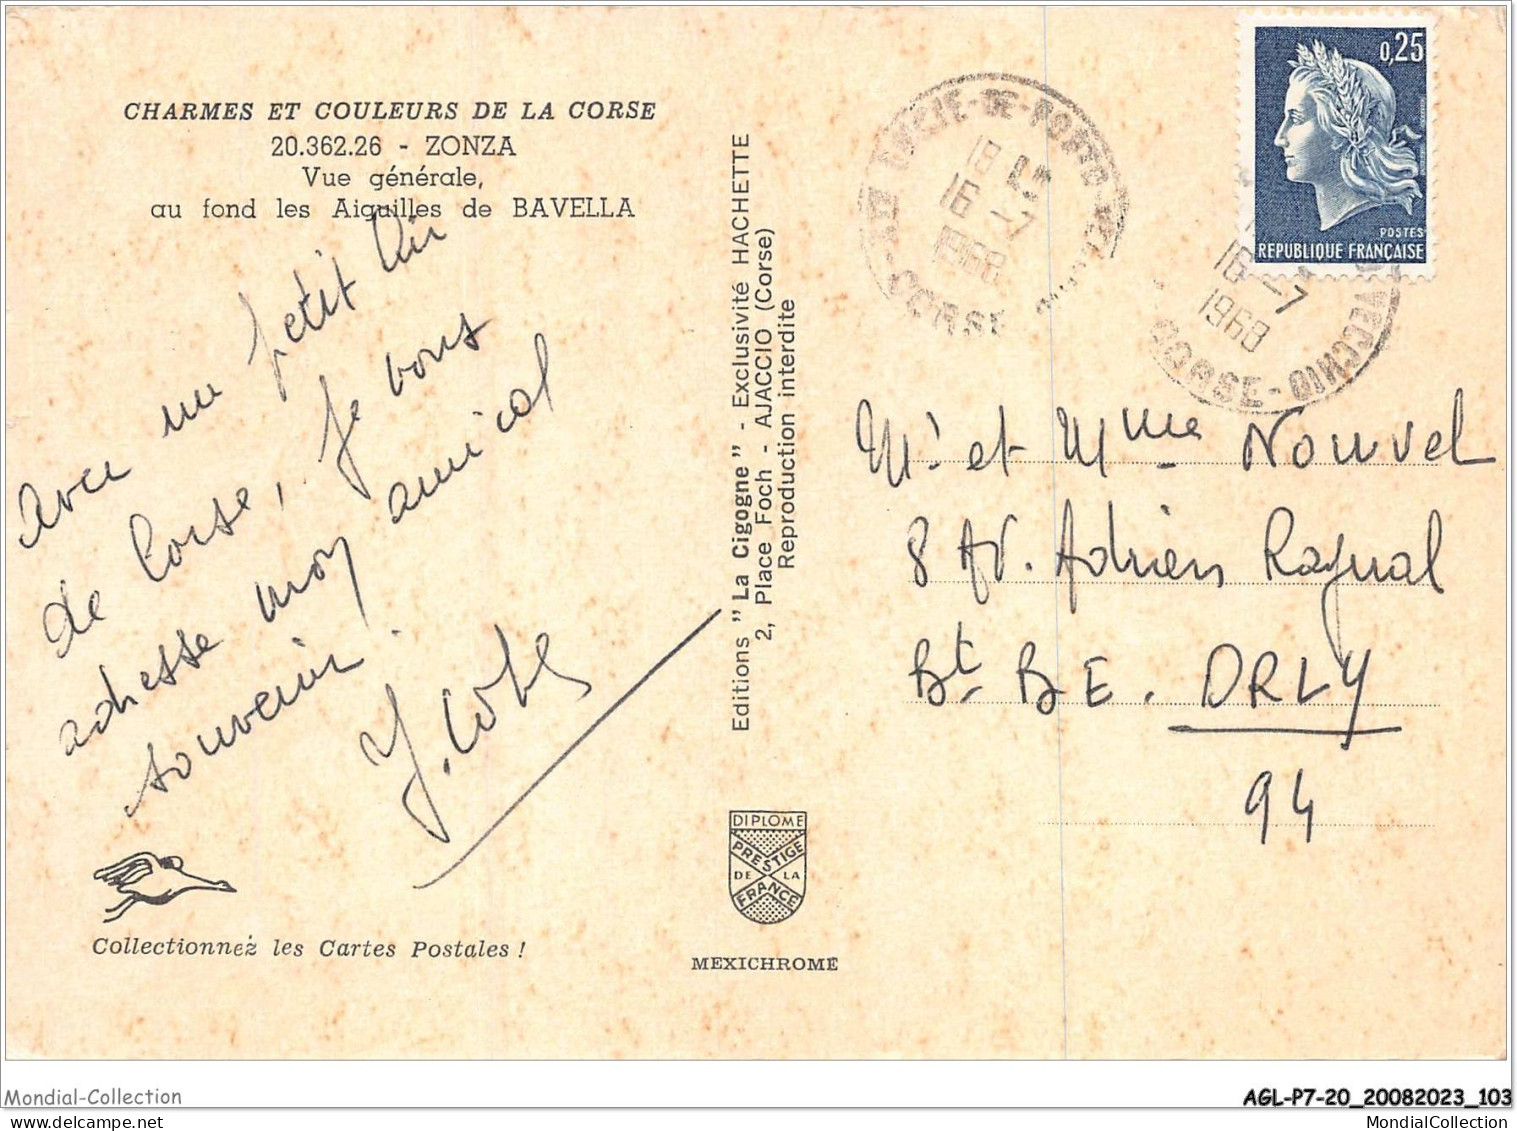 CHARMES ET COULEURS DE LA CORSE
20.362.26 - ZONZA
Vue générale,
au fond les Aiguilles de BAVELLA
Avec un petit
de Corse, je vous
adresse mon amical
souvenir.
Collectionnez les Cartes Postales !
Editions " La Cigogne " - Exclusivité HACHETTE
2, Place Foch - AJACCIO (Corse)
Reproduction interdite
DIPLOME
PRESTIGE
DE LA
FRANCE
MEXICHROME
LUCIE-DE-PORTO-
18
16 -7
1968
CORSE
0,25
POSTES
REPUBLIQUE FRANÇAISE
16 -7
1968
VECCHIO
CORSE-
Mr et Mme Nouvel
8 AV. Adrien Raynal
Bt BE. ORLY
94
Mondial-Collection
AGL-P7-20_20082023_103
MondialCollection